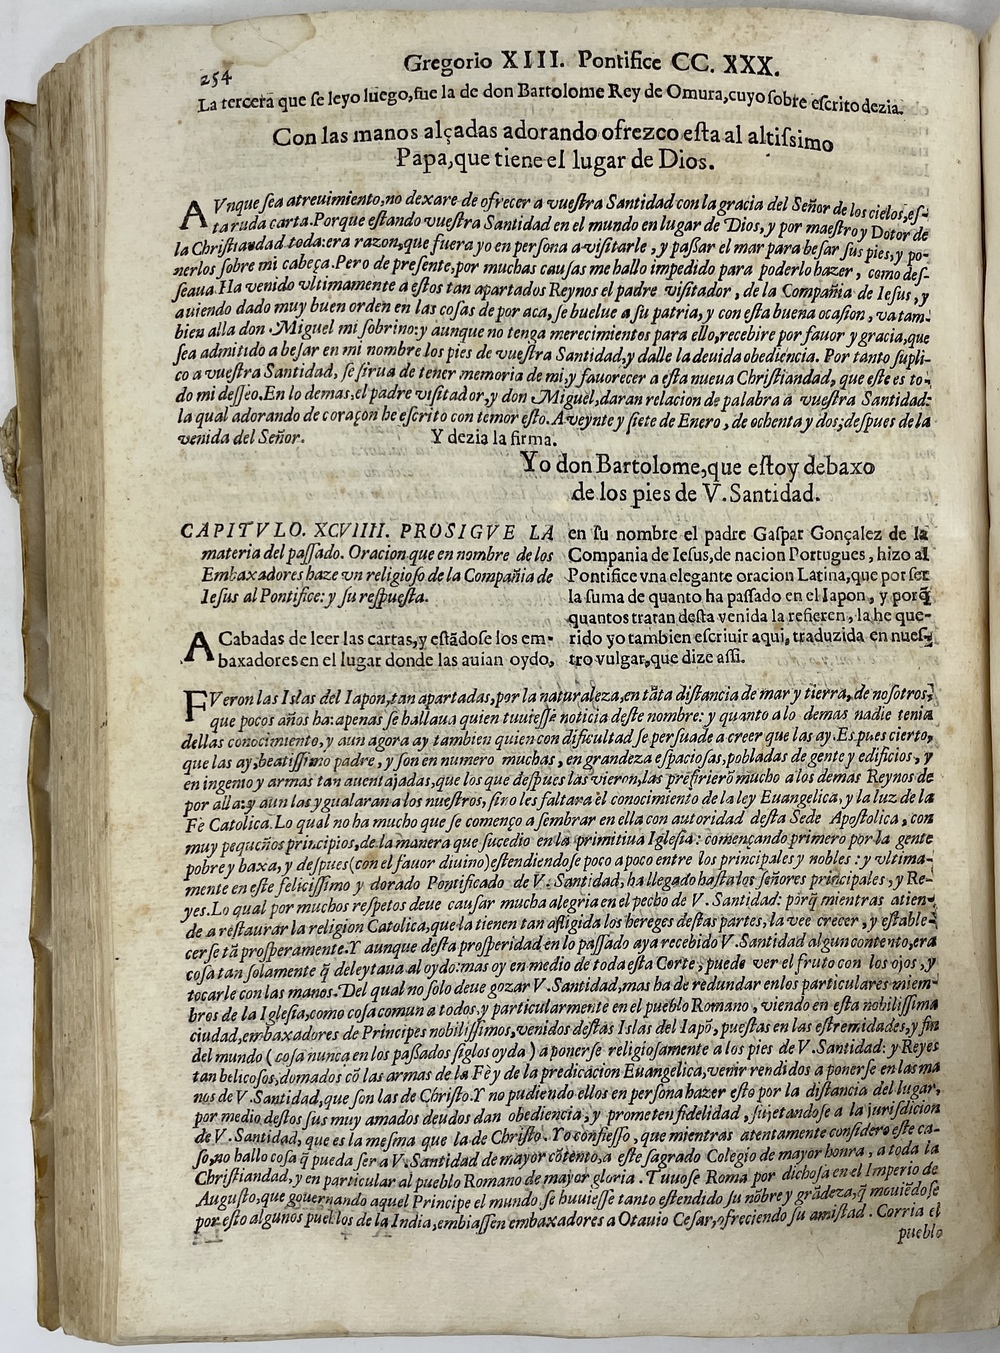 254
Gregorio XIII. Pontifice CC. XXX.
La tercera que se leyo luego, fue la de don Bartolome Rey de Omura, cuyo sobre escrito dezia.
Con las manos alçadas adorando ofrezco esta al altissimo
Papa, que tiene el lugar de Dios.
AVnque sea atreuimiento, no dexare de ofrecer a vuestra Santidad con la gracia del Señor de los cielos, es-
ta ruda carta. Porque estando vuestra Santidad en el mundo en lugar de Dios, y por maestro y Dotor de
la Christiandad toda: era razon, que fuera yo en persona a visitarle, y passar el mar para besar sus pies, y po-
nerlos sobre mi cabeça. Pero de presente, por muchas causas me hallo impedido para poderlo hazer, como des-
seaua. Ha venido vltimamente a estos tan apartados Reynos el padre visitador, de la Compañia de Iesus, y
auiendo dado muy buen orden en las cosas de por aca, se buelue a su patria, y con esta buena ocasion, va tam-
bien alla don Miguel mi sobrino: y aunque no tenga merecimientos para ello, recebire por fauor y gracia, que
sea admitido a besar en mi nombre los pies de vuestra Santidad, y dalle la deuida obediencia. Por tanto supli-
co a vuestra Santidad, se sirua de tener memoria de mi, y fauorecer a esta nueua Christiandad, que este es to-
do mi desseo. En lo demas, el padre visitador, y don Miguel, daran relacion de palabra a vuestra Santidad:
la qual adorando de coraçon he escrito con temor esto. A veynte y siete de Enero, de ochenta y dos; despues de la
venida del Señor. Y dezia la firma.
Yo don Bartolome, que estoy debaxo
de los pies de V. Santidad.
CAPITVLO. XCVIIII. PROSIGVE LA
materia del passado. Oracion que en nombre de los
Embaxadores haze vn religioso de la Compañia de
Iesus al Pontifice: y su respuesta.
ACabadas de leer las cartas, y estãdose los em-
baxadores en el lugar donde las auian oydo,
en su nombre el padre Gaspar Gonçalez de la
Compania de Iesus, de nacion Portugues, hizo al
Pontifice vna elegante oracion Latina, que por ser
la suma de quanto ha passado en el Iapon, y porq̃
quantos tratan desta venida la refieren, la he que-
rido yo tambien escriuir aqui, traduzida en nues-
tro vulgar, que dize assi.
FVeron las Islas del Iapon, tan apartadas, por la naturaleza, en tãta distancia de mar y tierra, de nosotros,
que pocos años ha: apenas se hallaua quien tuuiesse noticia deste nombre: y quanto a lo demas nadie tenia
dellas conocimiento, y aun agora ay tambien quien con dificultad se persuade a creer que las ay. Es pues cierto,
que las ay, beatissimo padre, y son en numero muchas, en grandeza espaciosas, pobladas de gente y edificios, y
en ingenio y armas tan auentajadas, que los que despues las vieron, las prefirierõ mucho a los demas Reynos de
por alla: y aun las ygualaran a los nuestros, si no les faltara el conocimiento de la ley Euangelica, y la luz de la
Fè Catolica. Lo qual no ha mucho que se començo a sembrar en ella con autoridad desta Sede Apostolica, con
muy pequeños principios, de la manera que sucedio en la primitiua Iglesia: començando primero por la gente
pobre y baxa, y despues (con el fauor diuino) estendiendose poco a poco entre los principales y nobles: y vltima-
mente en este felicissimo y dorado Pontificado de V. Santidad, ha llegado hasta los señores principales, y Re-
yes. Lo qual por muchos respetos deue causar mucha alegria en el pecho de V. Santidad: porq̃ mientras atien-
de a restaurar la religion Catolica, que la tienen tan afligida los hereges destas partes, la vee crecer, y estable-
cerse tã prosperamente. Y aunque desta prosperidad en lo passado aya recebido V. Santidad algun contento, era
cosa tan solamente q̃ deleytaua al oydo: mas oy en medio de toda esta Corte, puede ver el fruto con los ojos, y
tocarle con las manos. Del qual no solo deue gozar V. Santidad, mas ha de redundar en los particulares miem-
bros de la Iglesia, como cosa comun a todos, y particularmente en el pueblo Romano, viendo en esta nobilissima
ciudad, embaxadores de Principes nobilissimos, venidos destas Islas del Iapõ, puestas en las estremidades, y fin
del mundo (cosa nunca en los passados siglos oyda) a ponerse religiosamente a los pies de V. Santidad: y Reyes
tan belicosos, domados cõ las armas de la Fè y de la predicacion Euangelica, venir rendidos a ponerse en las ma
nos de V. Santidad, que son las de Christo. Y no pudiendo ellos en persona hazer esto por la distancia del lugar,
por medio destos sus muy amados deudos dan obediencia, y prometen fidelidad, sujetandose a la jurisdicion
de V. Santidad, que es la mesma que la de Christo. Yo confiesso, que mientras atentamente considero este ca-
so, no hallo cosa q̃ pueda ser a V. Santidad de mayor cõtento, a este sagrado Colegio de mayor honra, a toda la
Christiandad, y en particular al pueblo Romano de mayor gloria. Tuuose Roma por dichosa en el Imperio de
Augusto, que gouernando aquel Principe el mundo, se huuiesse tanto estendido su nõbre y grãdeza, q̃ mouiẽdose
por esto algunos pueblos de la India, embiassen embaxadores a Otauio Cesar, ofreciendo su amistad. Corria el
pueblo